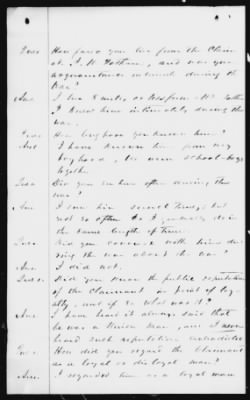 Ques How far do you live from the Claim-
ant, and was you
acquainted intimately during the
War?
Ans I live 8 miles or less from Mr.
I knew him intimately during the
war.
Ques How long have you known him?
Ans I have known him from my
boyhood, we were school-boys
together.
Ques Did you see him often during the
war?
Ans I saw him several times, but
not so often as I generally do in
the same length of time.
Ques Did you converse with him du-
ring the war about the war?
Ans I did not.
Ques Did you know the public reputation
of the Claimant in point of loy-
alty, and if so what was it?
Ans I have heard it always said that
he was a Union man, and I never
heard such reputation contradicted
Ques How did you regard the Claimant
as a loyal or disloyal man?
Ans I regarded him as a loyal man